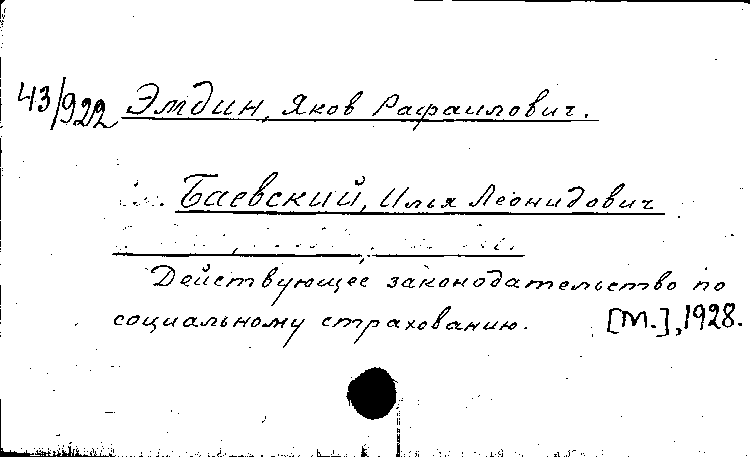 43/922 Эмдин, Яков Рафаилович.
Баевский, Илья Леонидович
Действующее законодательство по
социальному страхованию. [М.], 1928.